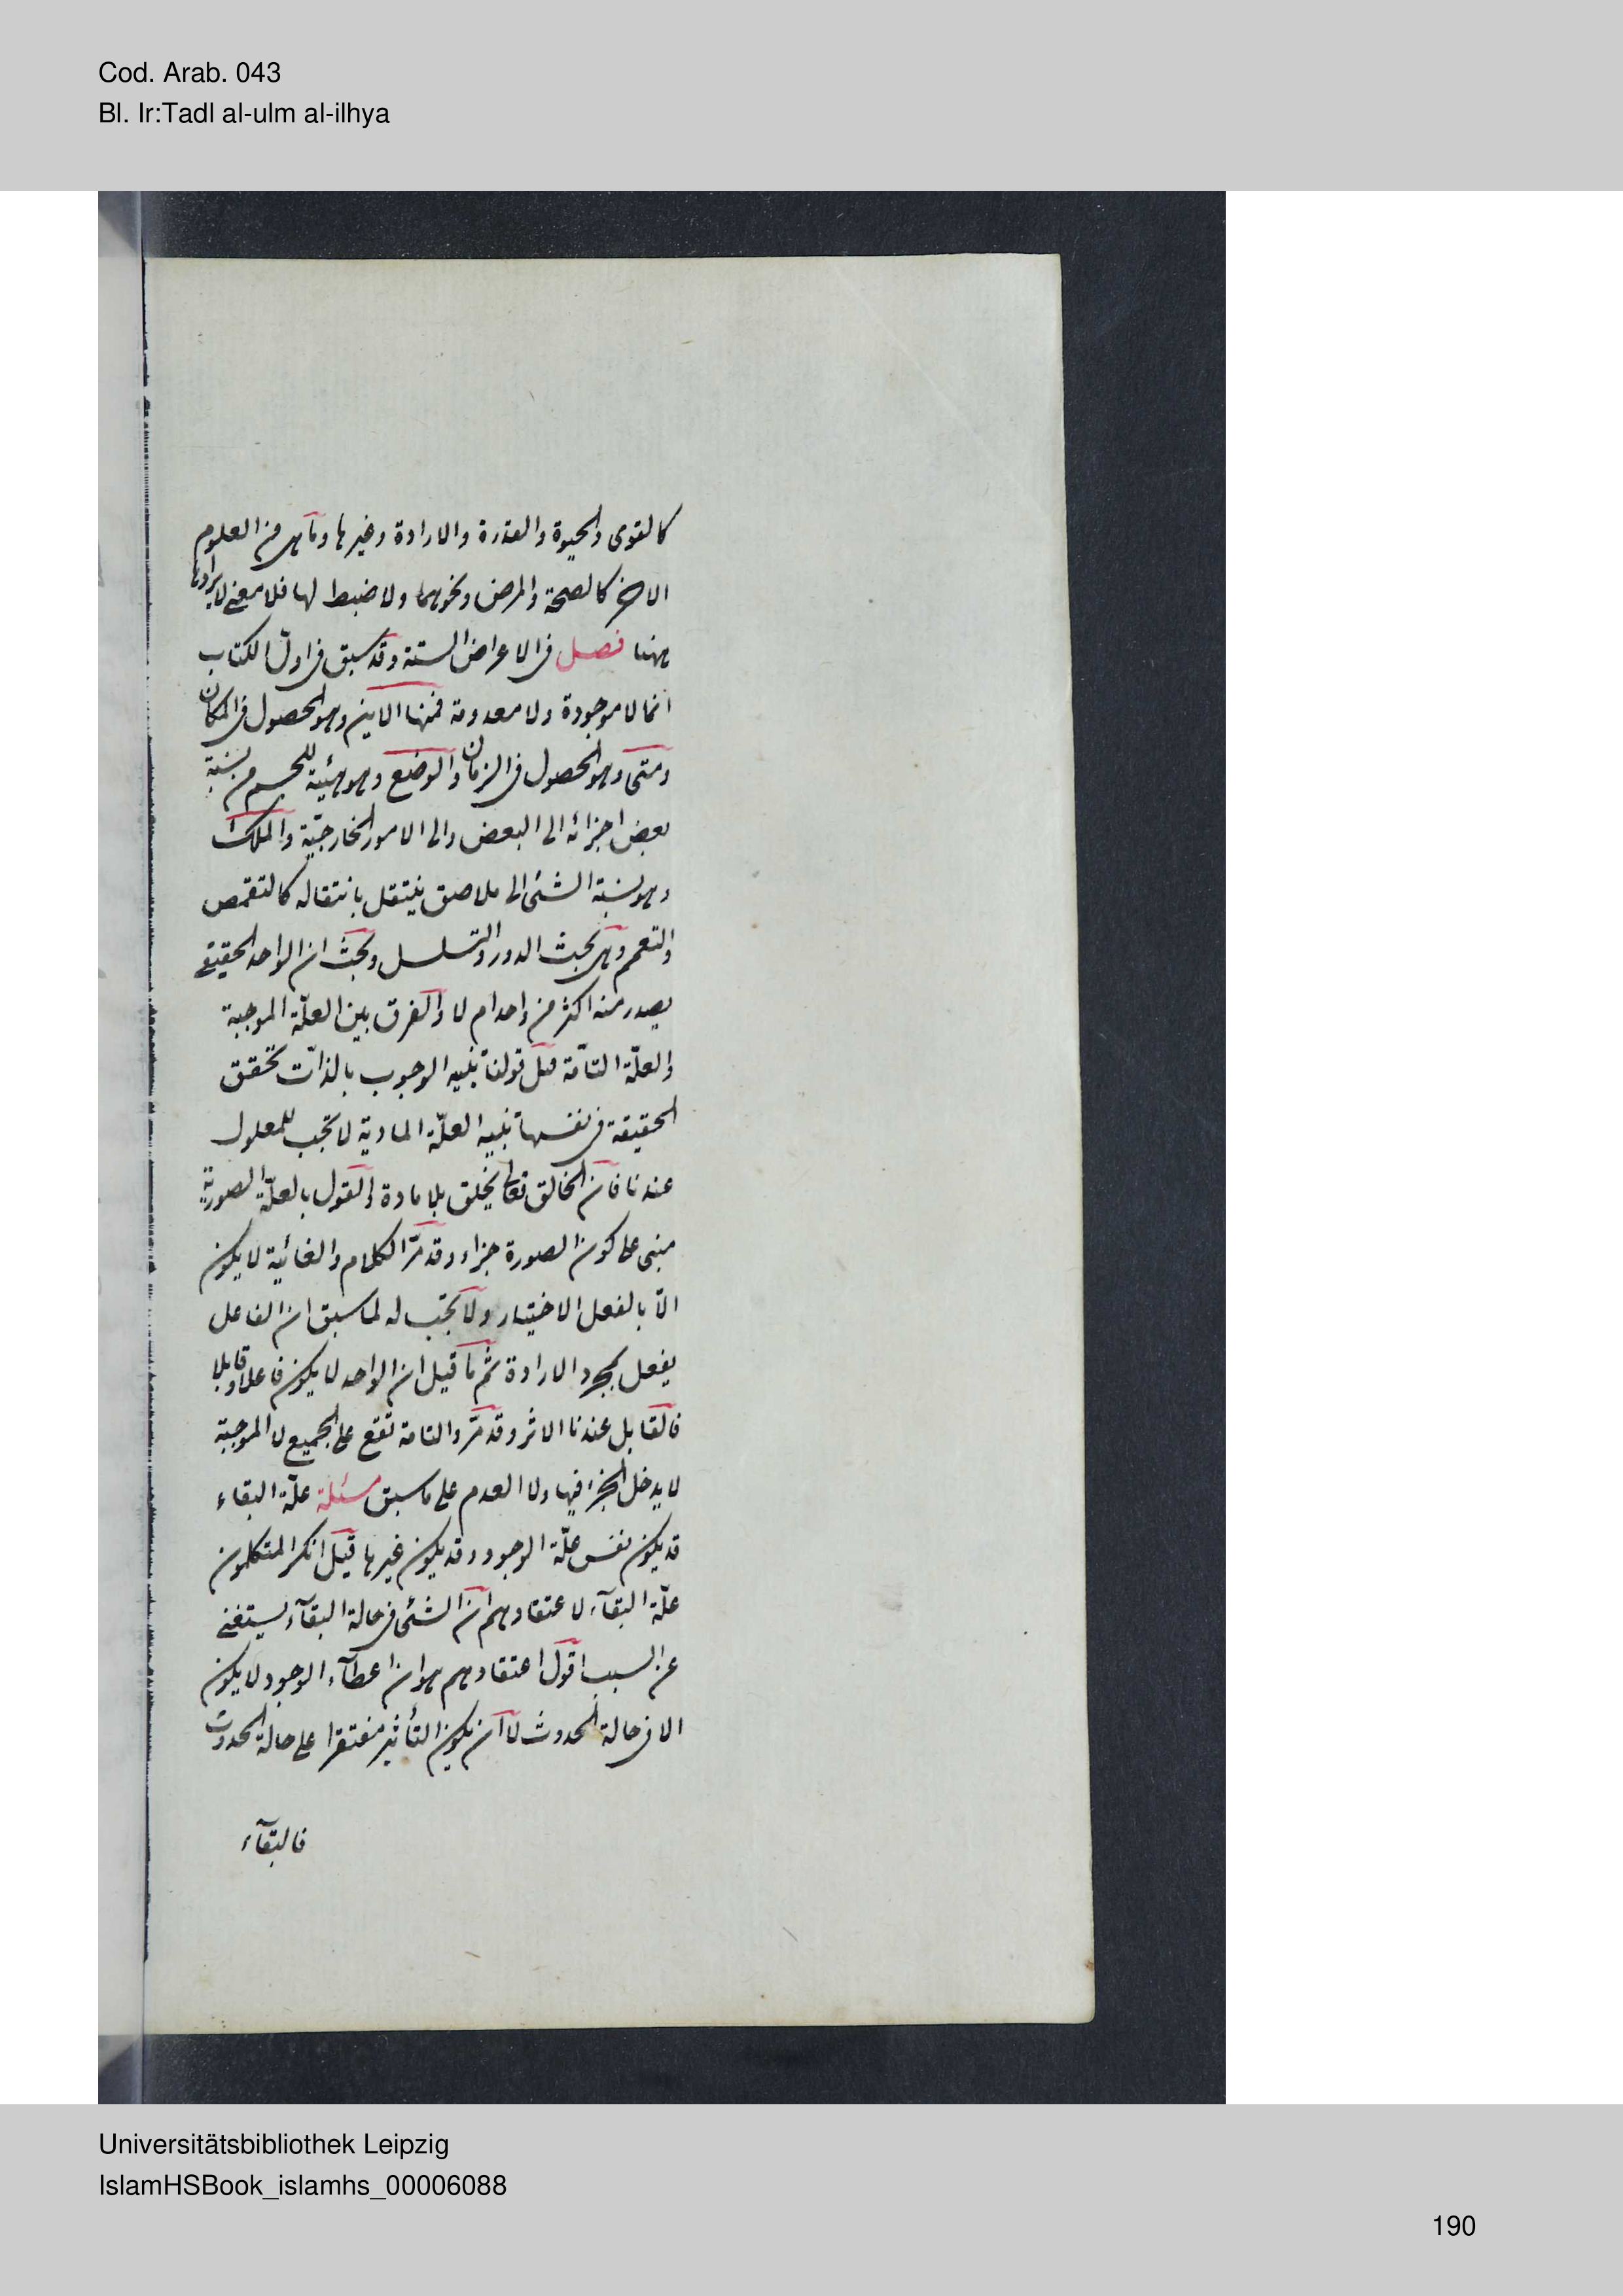 Cod. Arab. 043
Bl. Ir:Tadl al-ulm al-ilhya
كالقوى والحيوة والقدرة والارادة وغيرها ومآ هى من العلوم
الاخر كالصحة والمرض ونحوهما ولا ضبط لها فلا معنى لايرادها
ههنا فصل فى الاعراض الستة وقد سبق فى اول الكتاب
انها لا موجودة ولا معدومة فمنها الاين وهو الحصول فى المكان
ومتى وهو الحصول فى الزمان والوضع وهو هيئة للجسم من نسبة
بعض اجزائه الى البعض والى الامور الخارجيّة والملك
وهو نسبة الشئ الى ملاصق ينتقل بانتقاله كالتقمص
والتعمم وهى بحث الدور والتسلسل وبحث ان الواحد الحقيقى
يصدر منه اكثر من واحد ام لا والفرق بين العلّة الموجبة
والعلّة التامّة مثل قولنا تنبيه الوجوب بالذات تحقق
الحقيقة فى نفسها تنبيه العلّة المادية لا تجب للمعلول
عندنا فان الخالق تعالى يخلق بلا مادة والقول بالعلّة الصورية
مبنى على كون الصورة جزاء وقد مرّ الكلام والغائية لا يكون
الّا بالفعل الاختيار ولا تجب له لما سبق ان الفاعل
يفعل بمجرد الارادة ثم ما قيل ان الواحد لا يكون فاعلا وقابلا
فالقابل عندنا الاثر وقد مرّ والتامة تقع على الجميع لا الموجبة
لا يدخل الجزء فيها ولا العدم على ما سبق مسئلة علّة البقاء
قد يكون نفس علّة الوجود وقد يكون غيرها قيل انكر المتكلمون
علّة البقآء لاعتقادهم ان الشئ فى حالة البقآء يستغنى
عن السبب اقول اعتقادهم هو ان اعطآء الوجود لا يكون
الا فى حالة الحدوث لا ان يكون التأثير مفتقرا على حالة الحدوث
فالبقآء
Universitätsbibliothek Leipzig
IslamHSBook_islamhs_00006088
190